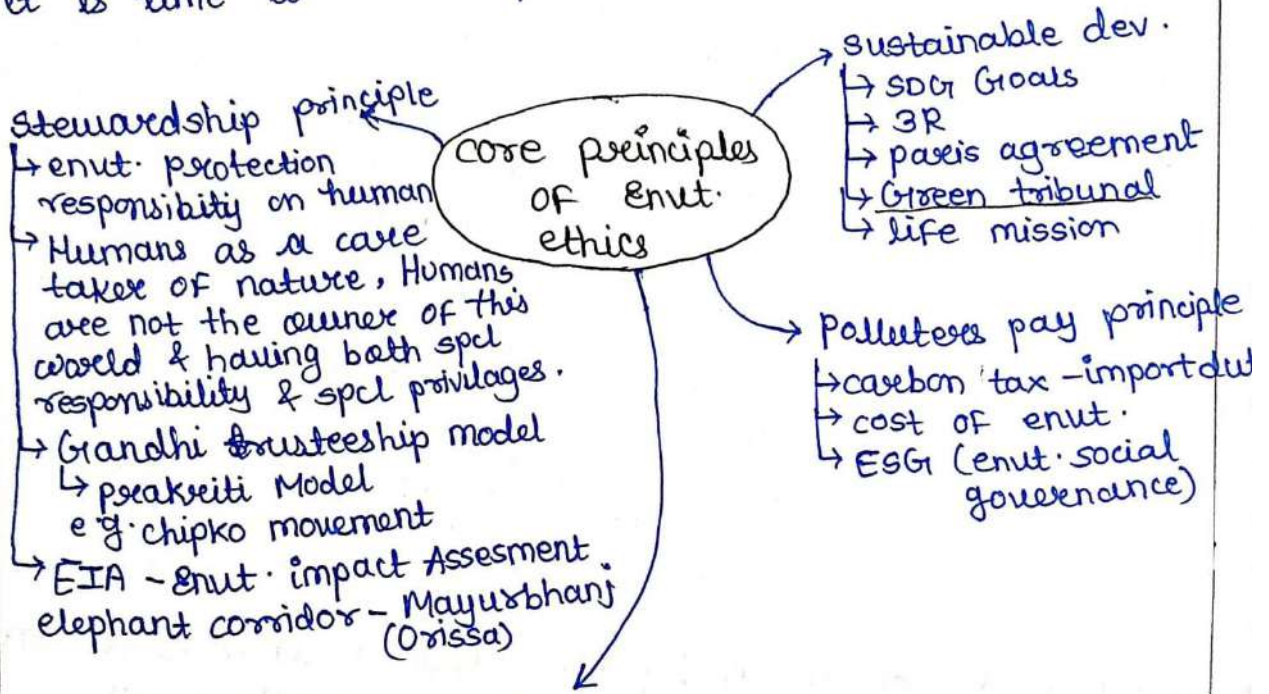 it is time
Stewardship principle
↳ envt. protection
responsibity on human
→ Humans as a care
taker of nature, Humans
are not the owner of this
world & having both spcl
responsibility & spcl privilages.
→ Gandhi trusteeship model
↳ prakriti Model
e.g. chipko movement
→ EIA - Envt. impact Assesment
elephant corridor - Mayurbhanj
(Orissa)
core principles
OF Envt.
ethics
sustainable dev.
→ SDG Goals
→ 3R
→ paris agreement
→ Green tribunal
↳ life mission
Polluters pay principle
→ carbon tax - import
→ cost of envt.
↳ ESG (envt. social
governance)